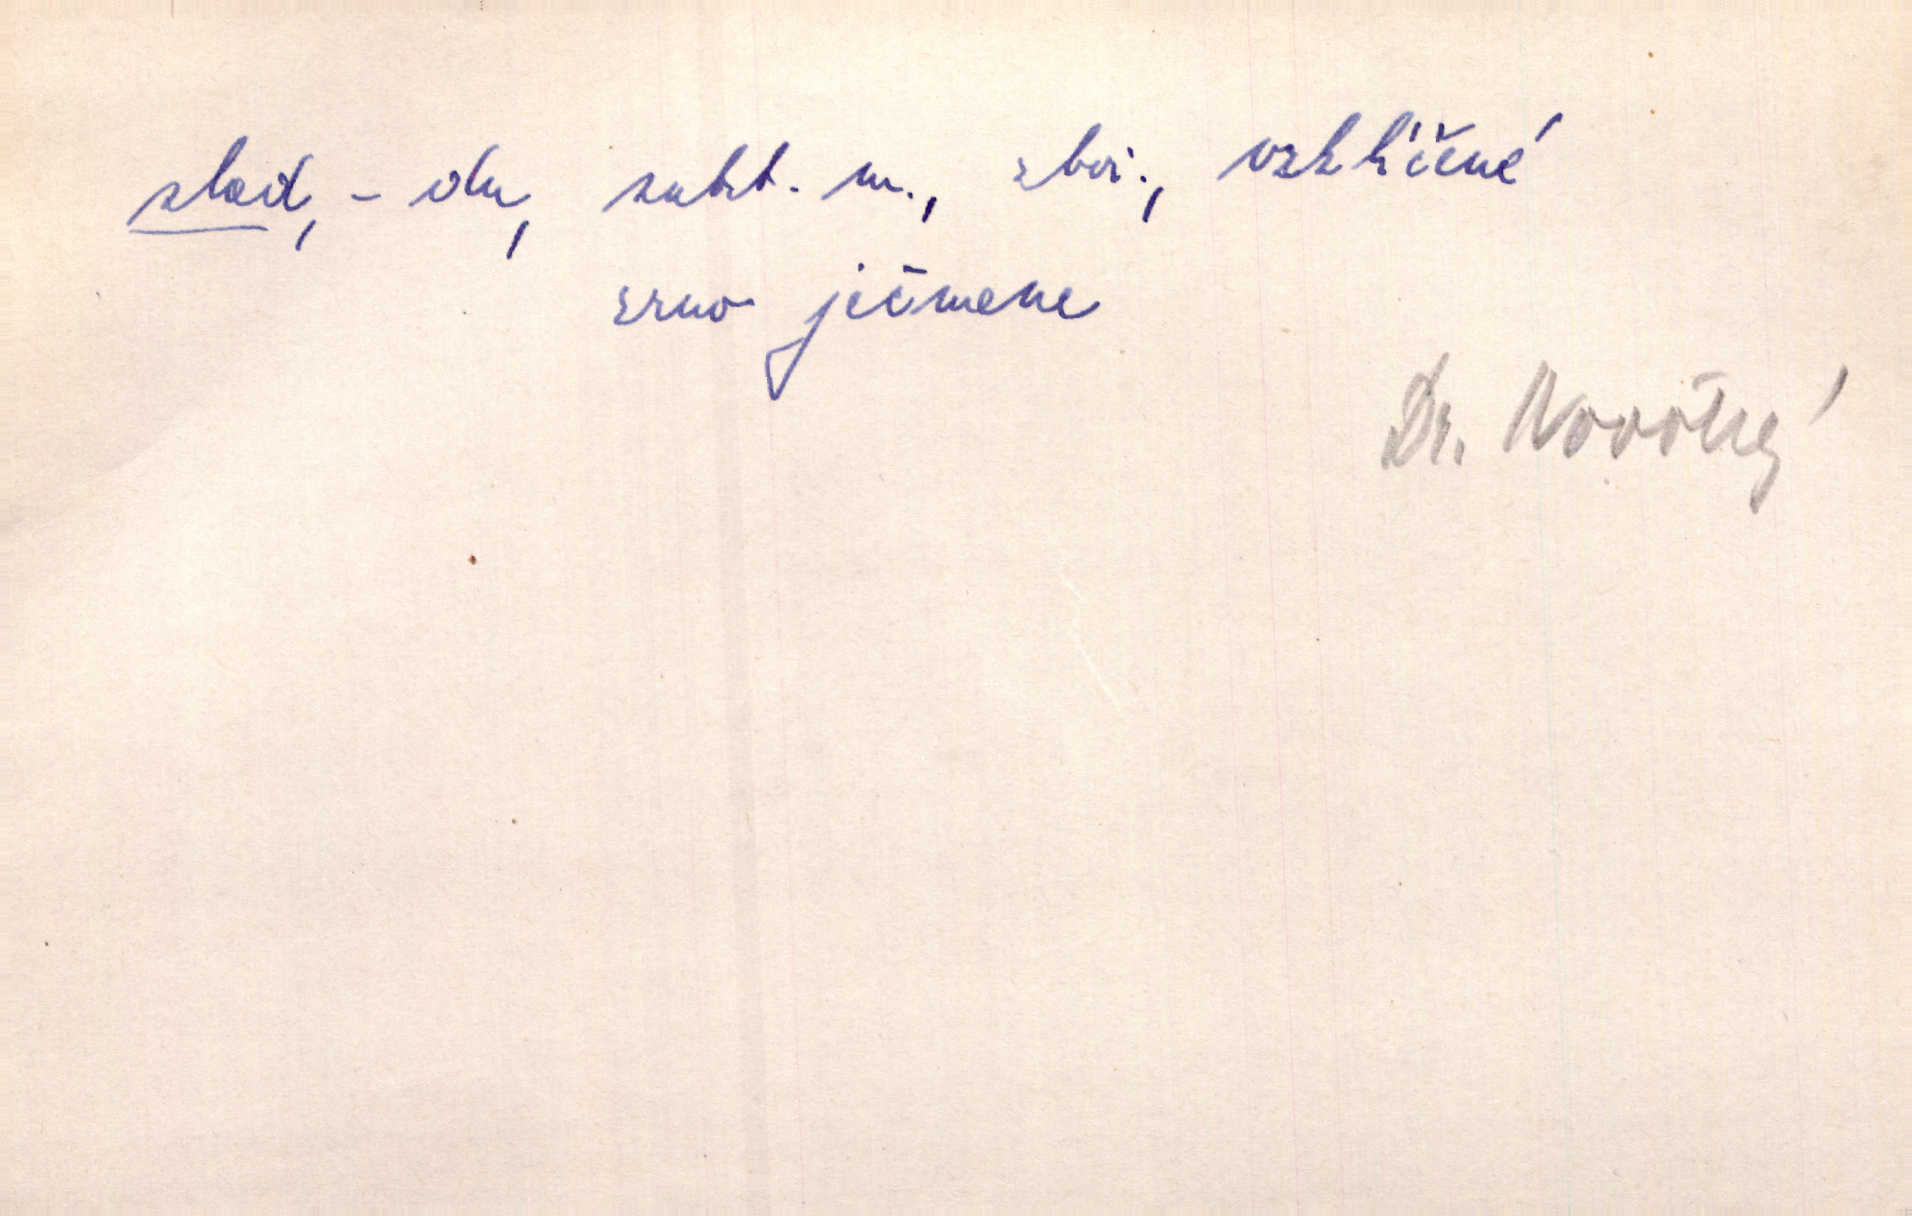 slad, -du, subst. m., zbož., vzklíčené
zrno ječmene
Dr. Novotný